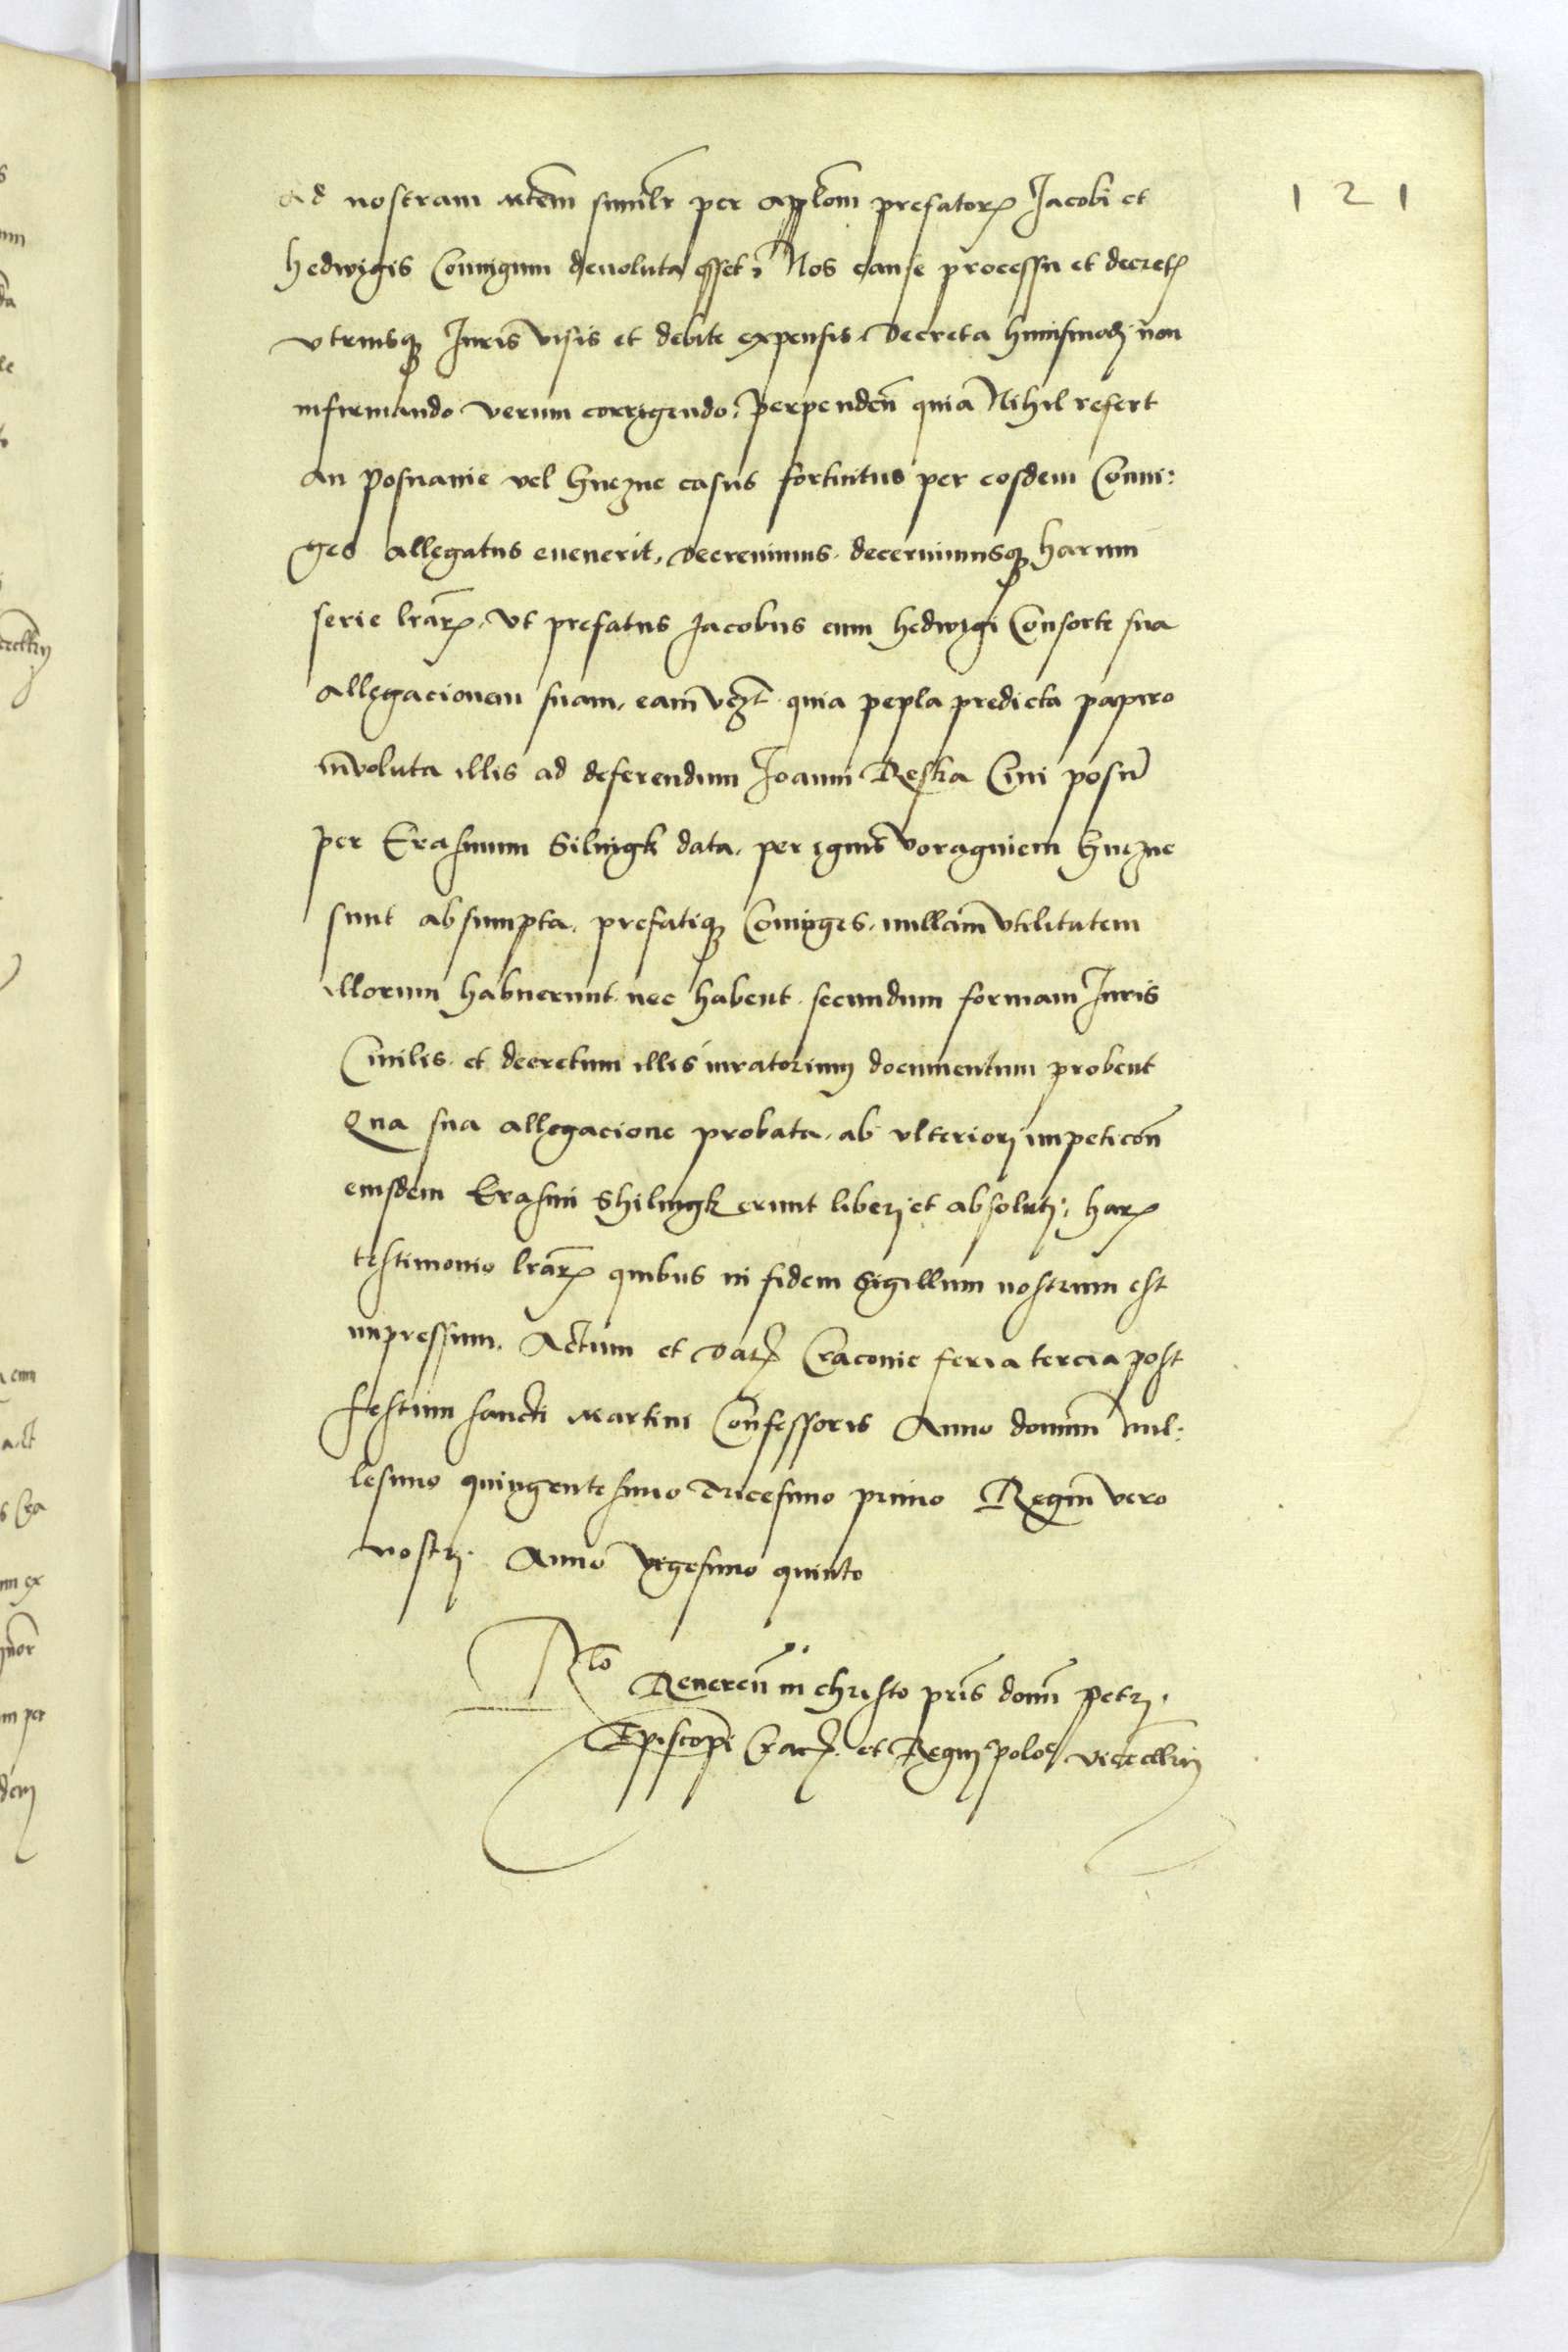 121
ad nostram Mtem similr per applōm prefatorꝝ Jacobi et
hedwigis Coniugum deuoluta esset: Nos cause processu et decretꝭ
vtriusqꝫ Iuris visis et debite expensis. Decreta huiusmodj non
infirmando verum corrigendo: Perpenden̄ quia Nihil refert
an posnanie vel Gnezne casus fortuitus per eosdem Coniu:
ges allegatus euenerit, Decreuimus. decernimusqꝫ harum
serie lrārꝝ. Vt prefatus Jacobus cum hedwigi Consorte sua
allegacionem suam, eam vꝫt. quia pepla predicta papiro
inuoluta illis ad deferendum Joanni Reska Ciui posn̄
per Erasmum Silnigk data, per ignis voraginem Gnezne
sunt absumpta. prefatiqꝫ Coniuges. nullam vtilitatem
illorum habuerunt. nec habent. secundum formam Iuris
Ciuilis. et decretum illis iuratorium documentum probent
Qua sua allegacione probata. ab vlteriorj impeticōn
eiusdem Erasmi Shilingk erunt liberj et absolutj: harꝝ
testimonio lrārꝝ quibus in fidem Sigillum nostrum est
impressum. Actum et Datꝭ Cracouie feria tercia post
festum sancti Martini Confessoris Anno domini mil:
lesimo quingentesimo Tricesimo primo Regni vero
nostrj. Anno vigesimo quinto
Rlō Reueren̄ in christo pr̄is domī Petrj.
Episcopi Cracꝭ. et Regnj poloꝭ vicecllrij